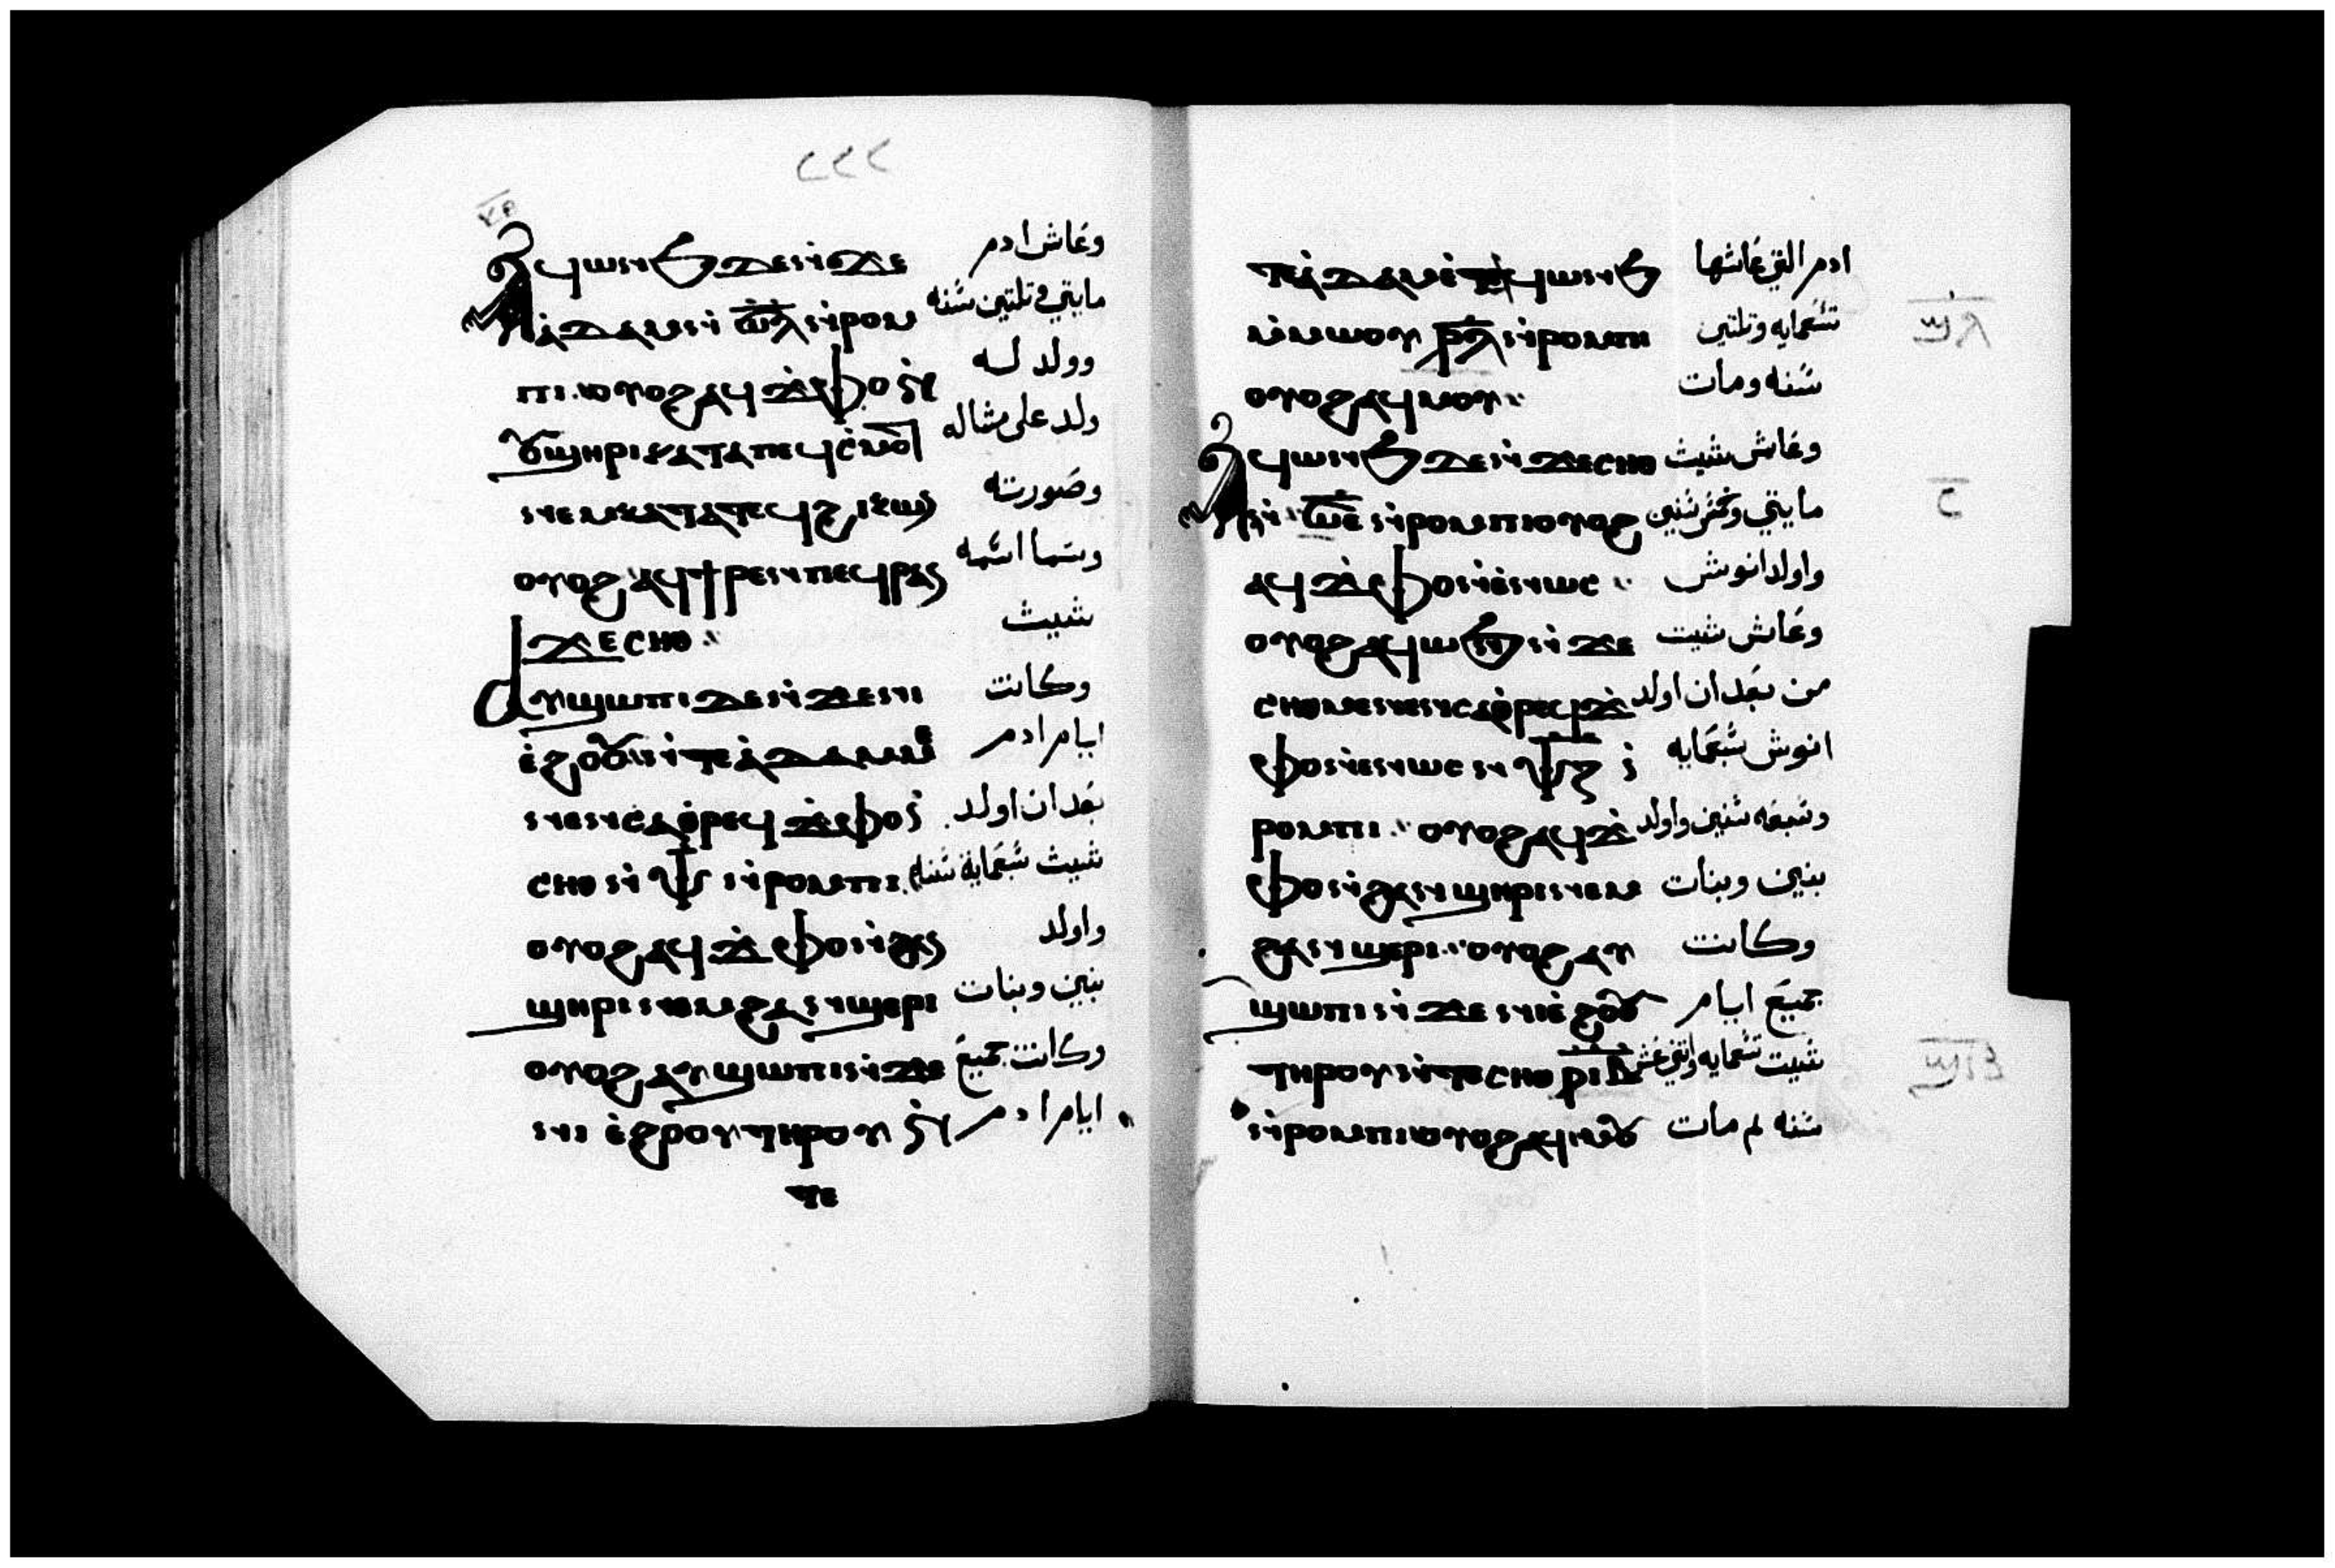 ⲁϥⲱⲛϧ ⲇⲉ ⲛ̇ϫⲉ وعاش ادم
ⲁ̇ⲇⲁⲙ ⲛ̇ ⲥ̅ⲗ̅ ⲛ̇ⲣⲟⲙ مايتي وتلتين سنه
ⲡⲓ. ⲟⲩⲟϩ ⲁϥϫ̇ⲫⲟ ⲛ̇ وولد له
ⲟⲩϣⲏⲣⲓ ⲕⲁⲧⲁ ⲡⲉϥⲥ̇ⲙⲟⲧ ولد على مثاله
ⲛⲉⲙ ⲕⲁⲧⲁ ⲧⲉϥϩⲓⲕⲱⲛ وصورته
ⲟⲩⲟϩ ⲁϥϯⲣⲉⲛ ⲡⲉϥⲣⲁⲛ وسما اسمه
ϫⲉ ⲥⲏⲑ شيث
ⲁⲩϣⲱⲡⲓ ⲇⲉ ⲛ̇ϫⲉ ⲛⲓ وكانت
ⲉ̇ϩⲟⲟⲩ ⲛ̇ⲧⲉ ⲁ̇ⲇⲁⲙ ⲙ ايام ادم
ⲛⲉⲛⲥⲁ ⲑ̇ⲣⲉϥϫ̇ⲫⲟ ⲛ̇ بعد ان اولد
ⲥⲏⲑ ⲛ̇ ⲯ̅ ⲛ̇ⲣⲟⲙⲡⲓ. شيث سبعماية سنه
ⲟⲩⲟϩ ⲁϥϫ̇ⲫⲟ ⲛ̇ϩⲁⲛ واولد
ϣⲏⲣⲓ ⲛⲉⲙ ϩⲁⲛϣⲉⲣⲓ بنين وبنات
ⲟⲩⲟϩ ⲁⲩϣⲱⲡⲓ ⲛ̇ϫⲉ وكانت جميع
ⲛⲓ ⲉ̇ϩⲟⲟⲩ ⲧⲏⲣⲟⲩ ⲛ̇ ايام ادم
ⲧⲉ
ⲧⲉ ⲁ̇ⲇⲁⲙ ⲉ̇ⲧⲁϥⲱⲛϧ ادم التي عاشها
ⲙ̇ⲙⲱⲟⲩ ϣ̅ⲗ̅ ⲛ̇ⲣⲟⲙⲡⲓ تسعمايه وتلتين
ⲟⲩⲟϩ ⲁϥⲙⲟⲩ سنه ومات
ⲁϥⲱⲛϧ ⲇⲉ ⲛ̇ϫⲉ ⲥⲏⲑ وعاش شيث
ⲛ̇ ⲥ̅ⲉ̅ ⲛ̇ⲣⲟⲙⲡⲓ ⲟⲩⲟϩ مايتي وخمس سنين
ⲁϥϫ̇ⲫⲟ ⲛ̇ⲉ̇ⲛⲱⲥ واولد انوش
ⲟⲩⲟϩ ⲁϥⲱⲛϧ ⲛ̇ϫⲉ وعاش شيت
ⲥⲏⲑ ⲙⲉⲛⲉⲛⲥⲁ ⲑ̇ⲣⲉϥϫ̇ من بعد ان اولد
ⲫⲟ ⲛ̇ⲉⲛⲱⲥ ⲛ ⲯ̅ⲍ̅ ⲛ̇ انوش سبعمايه
ⲣⲟⲙⲡⲓ ⲟⲩⲟϩ ⲁϥϫ̇ وسبعه سنين واولد
ⲫⲟ ⲛ̇ϩⲁⲛϣⲏⲣⲓ ⲛⲉⲙ بنين وبنات
ϩⲁⲛϣⲉⲣⲓ ⲟⲩⲟϩ ⲁⲩ وكانت
ϣⲱⲡⲓ ⲛ̇ϫⲉ ⲛⲓⲉ̇ϩⲟⲟⲩ جميع ايام
ⲧⲏⲣⲟⲩ ⲛ̇ⲧⲉ ⲥⲏⲑ شيت تسعمايه واتني عشر
ⲛ̇ⲣⲟⲙⲡⲓ ⲟⲩⲟϩ ⲁϥⲙⲟⲩ سنه ثم مات